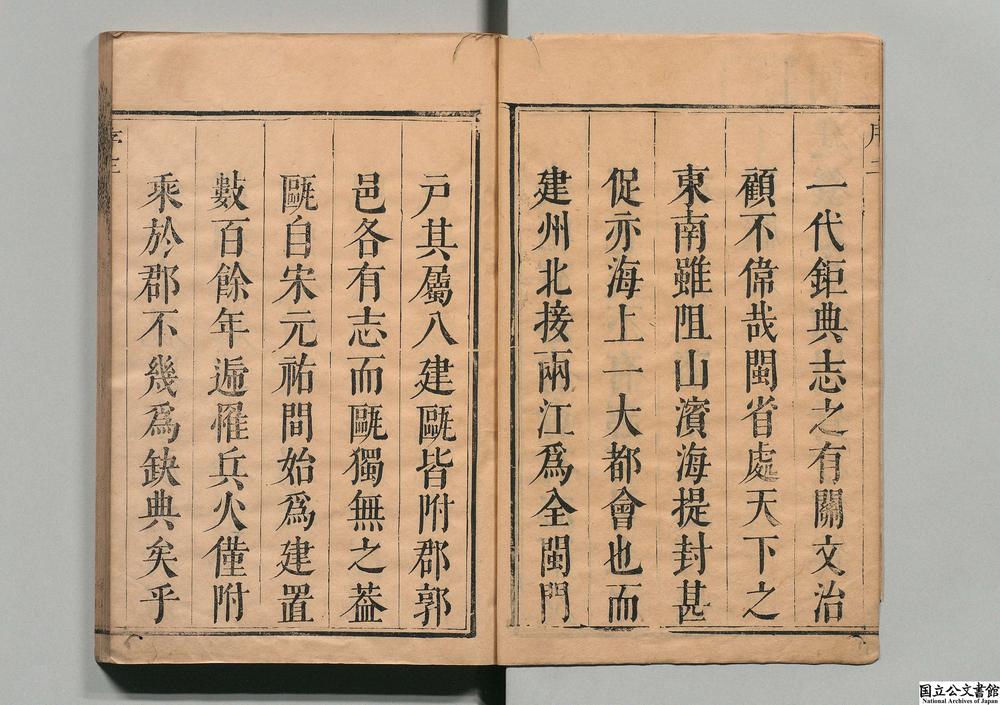 一代鉅典志之有關文治
顧不偉哉閩省處天下之
東南雖阻山濱海提封甚
促亦海上一大都會也而
建州北接兩江爲全閩門
戸其屬八建甌皆附郡郭
邑各有志而甌獨無之葢
甌自宋元祐間始爲建置
數百餘年遞罹兵火僅附
乘於郡不幾爲缺典矣乎
国立公文書館
National Archives of Japan